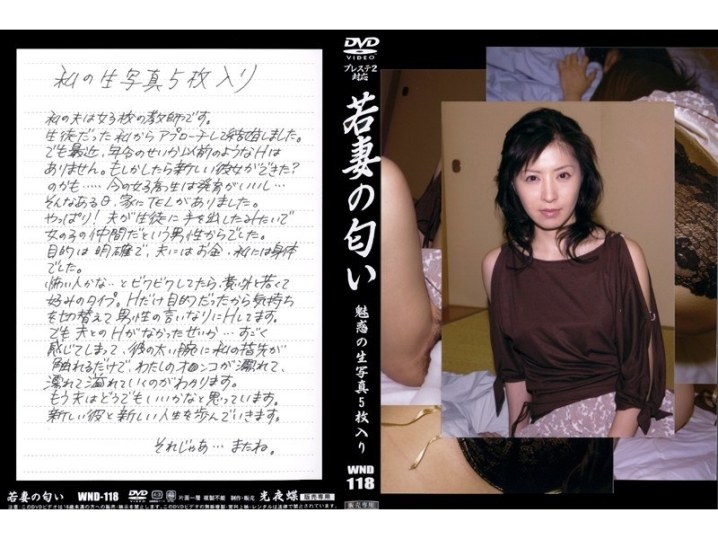 私の生写真5枚入り
私の夫は女子校の教師です。
生徒だった私からアプローチして結婚しました。
でも最近、年令のせいか以前のようなHは
ありません。もしかしたら新しい彼女ができた?
のかも…… 今の女子高生は発育がいいし…
そんなある日、家にTELがありました。
やっぱり! 夫が生徒に手を出したみたいで
女の子の仲間だという男性からでした。
目的は明確で、夫にはお金、私には身体
でした。
怖い人かな…とビクビクしてたら、意外と若くて
好みのタイプ。Hだけ目的だったから気持ち
を切替えて男性の言いなりにHしてます。
でも夫とのHがなかったせいか…すごく
感じてしまって、彼の太い腕に私の指先が
触れるだけで、わたしのオ○ンコが濡れて、
濡れて溢れていくのがわかります。
もう夫はどうでもいいかなと思っています。
新しい彼と新しい人生を歩んでいきます。
それじゃあ… またね。
若妻の匂い WND-118 DVD VIDEO 片面一層 複製不能 制作・販売 光夜蝶 販売専用
DVD
VIDEO
プレステ2
対応
若妻の匂い
魅惑の生写真5枚入り
WND
118
販売専用